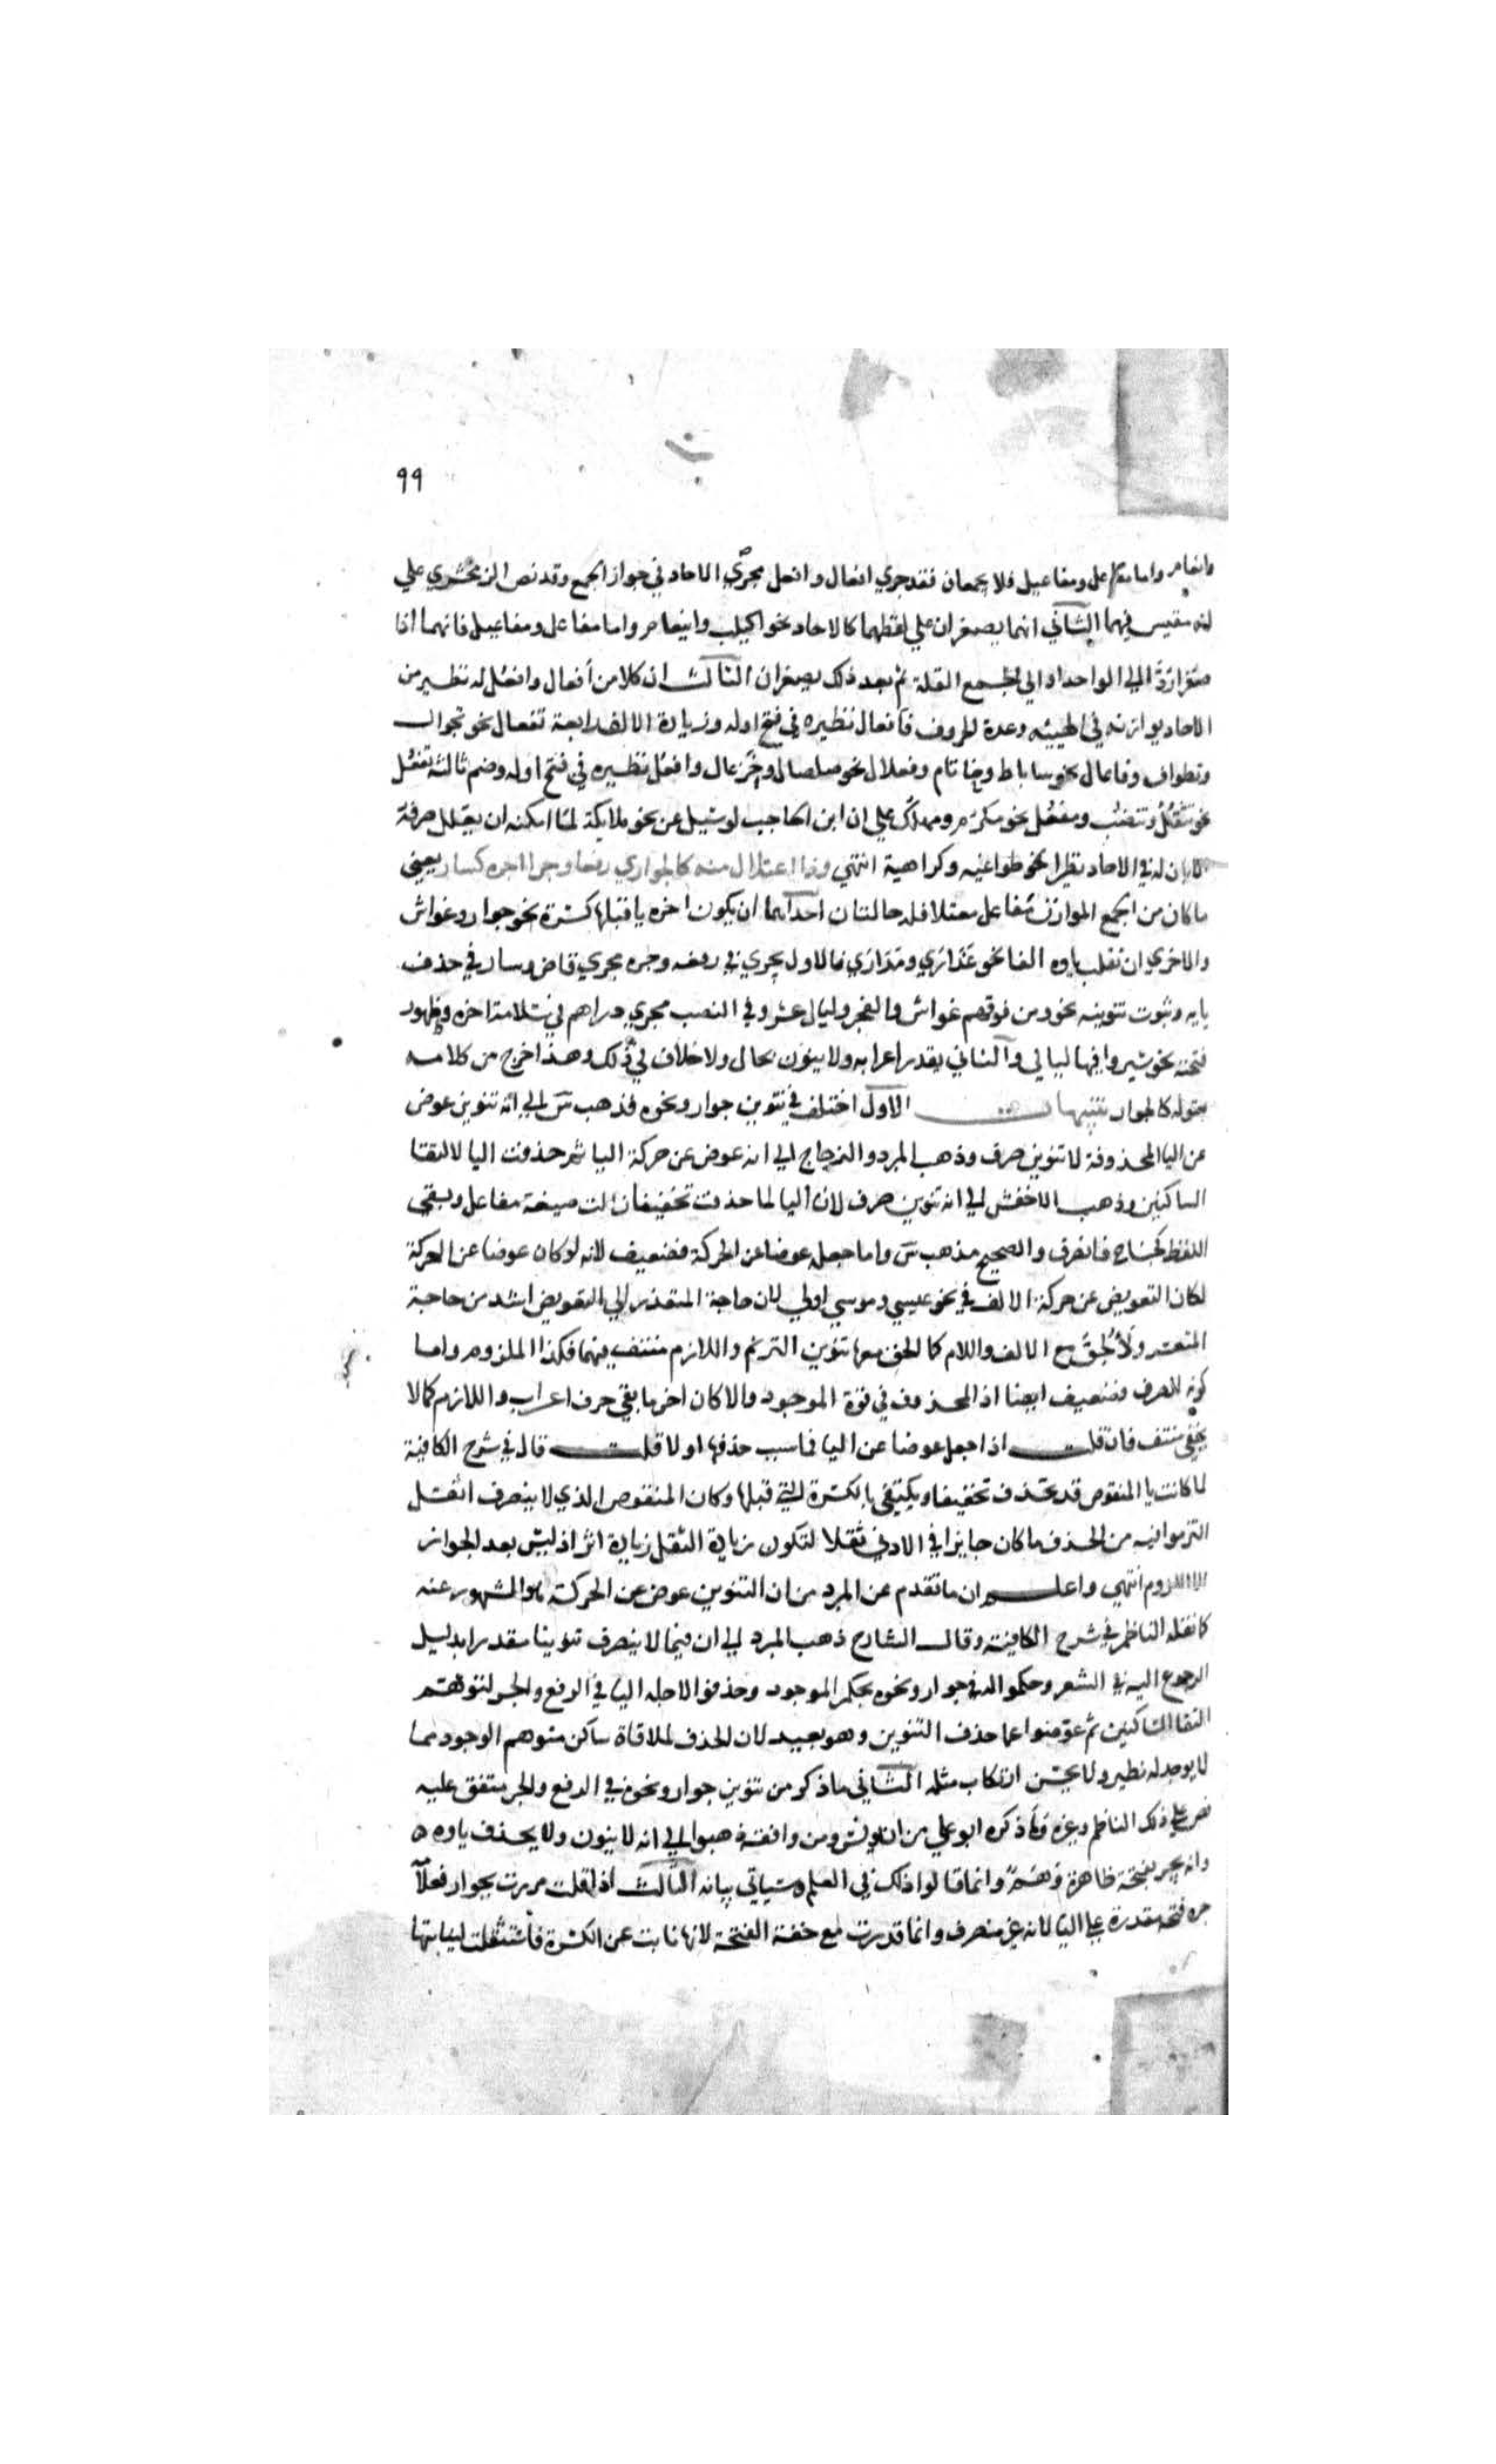 ٩٩
واناعم واما مفاعل ومفاعيل فلا يجمعان فقد جري افعال وافعل مجري الاحاد في جواز الجمع وقد نص الزمخشري علي
انه مقيس فيهما الثاني انهما يصغران علي لفظهما كالاحاد نحو اكيلب وانيعام واما مفاعل ومفاعيل فانهما اذا
صغرا ردا الي الواحد او الي جمع القلة ثم بعد ذلك يصغران الثالث ان كلا من أفعال وافعُل له نظير من
الاحاد يوازنه في الهيئه وعدة الحروف فأفعال نظيره في فتح اوله وزيادة الالف رابعة تفعال نحو تجوال
وتطواف وفاعال نحو ساباط وخاتام وفعلال نحو صلصال وخزعال وافعُل نظيره في فتح اوله وضم ثالثه تفعُل
نحو تتفُل وتنضُب ومفعُل نحو مكرُم ومهلُك علي ان ابن الحاجب لو سيل عن نحو ملايكة لما امكنه ان يعلل صرفه
الا بان له في الاحاد نظيرا نحو طواعيه وكراهية انتهي وذا اعتلال منه كالجواري رفعا وجرا اجره كسار يعني
ما كان من الجمع الموازن مفاعل معتلا فله حالتان احداهما ان يكون اخره يا قبلها كسرة نحو جوار وغواش
والاخري ان تقلب ياوه الفا نحو عَذَارَي ومَدَارَي فالاول يجري في رفعه وجره مجري قاض وسار في حذف
يايه وثبوت تنوينه نحو ومن فوقهم غواش والفجر وليال عشر وفي النصب مجري دراهم في سلامة اخره وظهور
فتحته نحو سيروا فيها ليالي والثاني يقدر اعرابه ولا ينون بحال ولا خلاف في ذلك وهذا خرج من كلامه
بقوله كالجوار تنبيهات الاول اختلف في تنوين جوار ونحوه فذهب س الي انه تنوين عوض
عن اليا المحذوفة لا تنوين صرف وذهب المبرد والزجاج الي انه عوض عن حركة اليا ثم حذفت اليا لالتقا
الساكنين وذهب الاخفش الي انه تنوين صرف لان اليا لما حذفت تخفيفا زالت صيغة مفاعل وبقي
اللفظ كجناح فانصرف والصحيح مذهب س واما جعله عوضا عن الحركة فضعيف لانه لو كان عوضا عن الحركة
لكان التعويض عن حركة الالف في نحو عيسي وموسي اولي لان حاجة المتعذر الي التعويض اشد من حاجة
المتعسر ولاُلحق مع الالف واللام كما الحق معها تنوين الترنم واللازم منتف فيهما فكذا الملزوم واما
كونه للصرف فضعيف ايضا اذ المحذوف في قوة الموجود والا كان اخر ما بقي حرف اعراب واللازم كما لا
يخفي منتف فان قلت اذا جعل عوضا عن اليا فما سبب حذفها اولا قلت قال في شرح الكافية
لما كانت يا المنقوص قد تحذف تخفيفا ويكتفي بالكسرة التي قبلها وكان المنقوص الذي لا ينصرف اثقل
التزموا فيه من الحذف ما كان جايزا في الادني ثقلا لتكون زيادة الثقل زيادة اثر اذ ليس بعد الجواز
الا اللزوم انتهي واعلم ان ما تقدم عن المبرد من ان التنوين عوض عن الحركة هو المشهور عنه
كما نقله الناظم في شرح الكافية وقال الشارح ذهب المبرد الي ان فيما لا ينصرف تنوينا مقدرا بدليل
الرجوع اليه في الشعر وحكموا له في جوار ونحوه بحكم الموجود وحذفوا لاجله اليا في الرفع والجر لتوهم
التقا الساكنين ثم عوضوا عما حذف التنوين وهو بعيد لان الحذف لملاقاة ساكن متوهم الوجود مما
لا يوجد له نظير ولا يحسن ارتكاب مثله الثاني ما ذكر من تنوين جوار ونحوه في الرفع والجر متفق عليه
نص علي ذلك الناظم وغيره وما ذكره ابو علي من ان يونس ومن وافقه ذهبوا الي انه لا ينون ولا يحذف ياوه
وانه يجر بفتحة ظاهرة وهم وانما قالوا ذلك في العلم وسياتي بيانه الثالث اذا قلت مررت بجوار فعلامة
جره فتحة مقدرة علي اليا لانه غير منصرف وانما قدرت مع خفة الفتحة لانها نابت عن الكسرة فاستثقلت لنيابتها